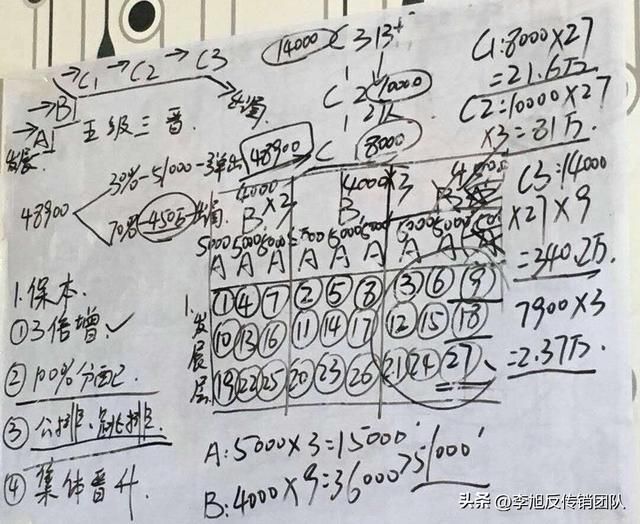 →C1→C2→C3
→B1
→A1
五级三晋
出局
发展
14000 C3 13+
C2 10000
12人
C 8000
C1:8000×27
=21.6万
C2:10000×27
×3=81万.
C3:14000
×27×9
=340.2万.
7900×3
=2.37万.
48900
30%-51000-弹出 48900
70% 450万 出局
4000
B ×3
4000×3
B
5000 5000 5000
A A A A A A A A A
① ④ ⑦ ② ⑤ ⑧ ③ ⑥ ⑨
⑩ ⑬ ⑯ ⑪ ⑭ ⑰ ⑫ ⑮ ⑱
⑲ ㉒ ㉕ ⑳ ㉓ ㉖ ㉑ ㉔ ㉗
1.发展层
1.保本.
①3倍增✓
②100%分配
③公排、跳排.
④集体晋升.
A:5000×3=15000
B:4000×9=36000>51000
头条@李旭反传销团队